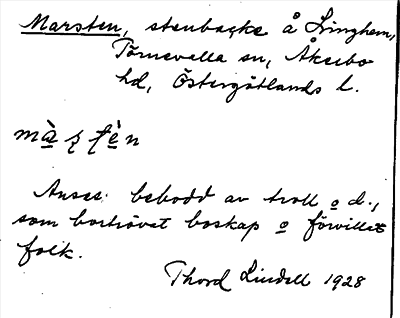 Marsten, stenbacke å Lringhem,
Törnevalla sn, Åkerbo
hd, Östergötlands l.
Anses bebodd av troll o d.,
som bortrövat boskap o förvillat
folk.
Thord Lindell 1928